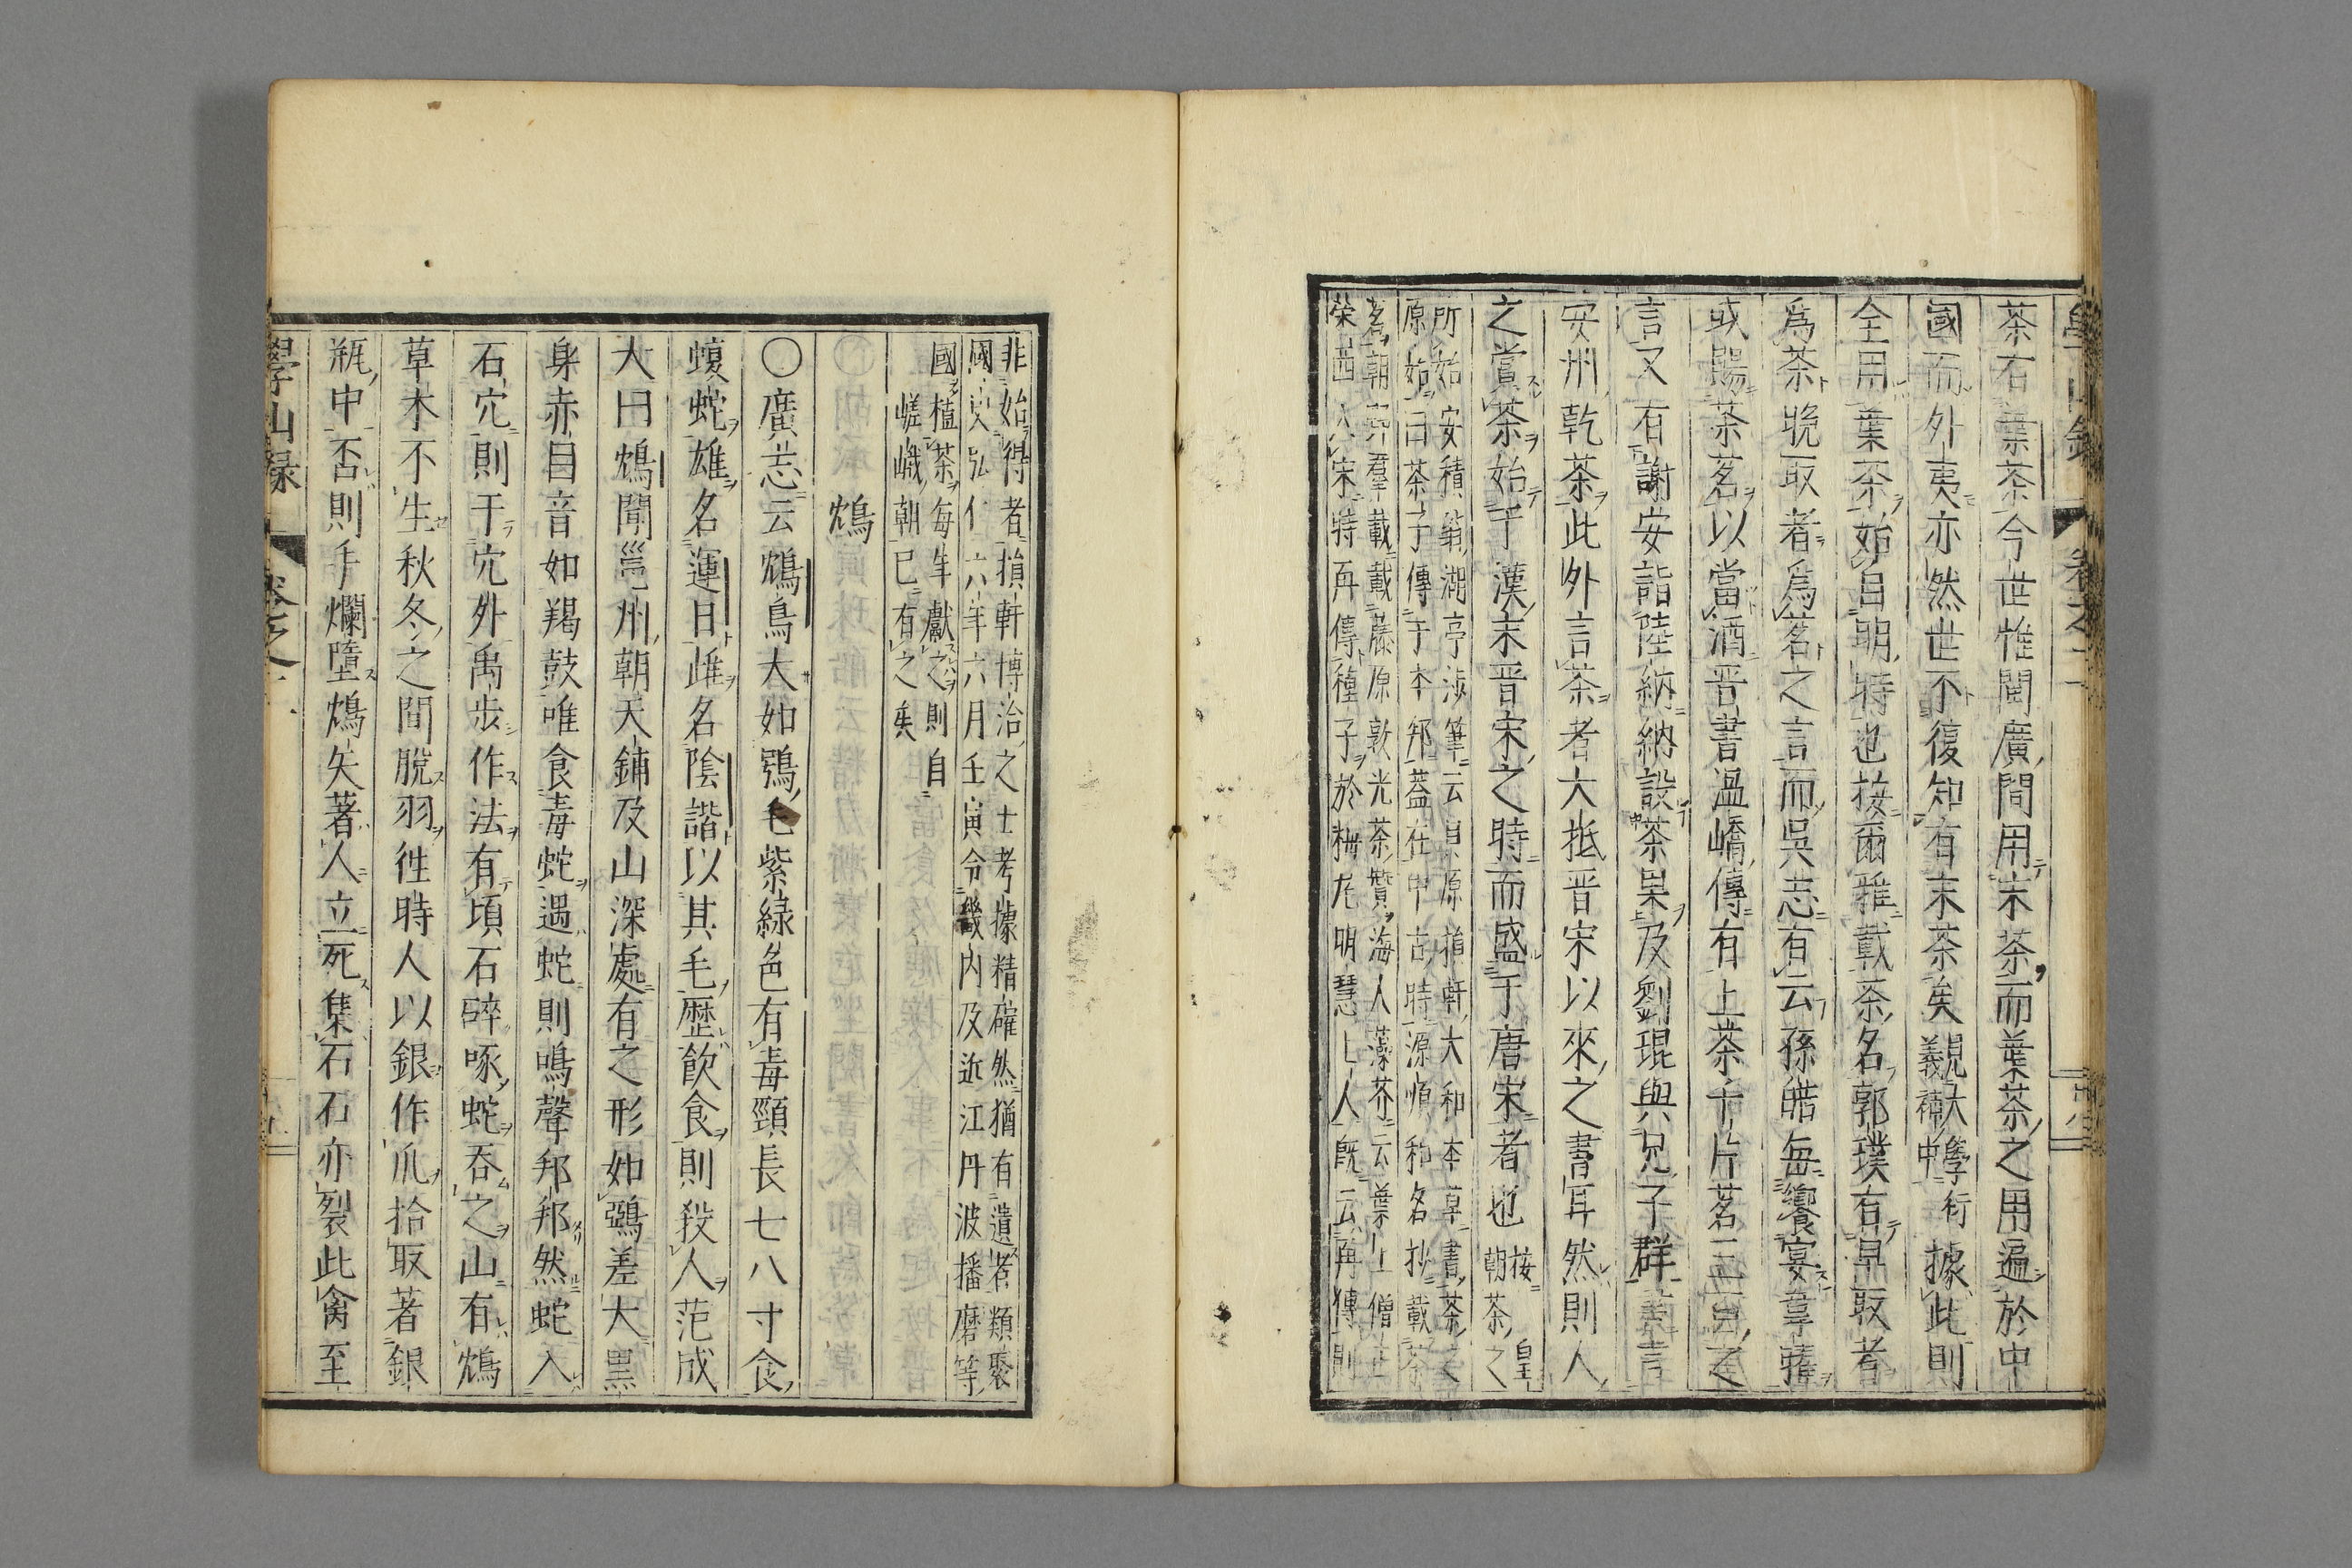 茶右葉茶今世惟閩廣間用末茶而葉茶之用遍於中
國而外夷亦然世不復知有末茶矣觀大學衍義補中據此則
全用葉茶始自明時也按爾雅載茶名郭璞有早取者
爲茶晩取者爲茗之言而吳志有云孫皓每饗宴韋曜
或賜茶茗以當酒晋書温嶠傳有上茶千片茗三百之
言又有謝安詣陸納納設茶果及劉琨與兄子群書言
安州乾茶此外言茶者大抵晋宋以來之書耳然則人
之賞茶始于漢末晋宋之時而盛于唐宋者也按皇朝茶之
所始安積翁湖亭涉筆云貝原損軒大和本草書茶之
原始曰茶子傳于本邦蓋在中古時源順和名抄載茶
茗朝奕羣載載藤原敦光茶贊海人藻芥云葉上僧正
榮西入宋時再傳種子於栂尾明慧上人既云再傳則
非始得者損軒博洽之士考據精確然猶有遺者類聚
國史弘仁六年六月壬寅令畿内及近江丹波播磨等
國植茶每年獻之則自
嵯峨朝已有之矣
鴆
〇廣志云鴆鳥大如鴞毛紫緑色有毒頸長七八寸食
蝮蛇雄名運日雌名陰諧以其毛歷飲食則殺人范成
大曰鴆聞邕州朝天鋪及山深處有之形如鵶差大黑
身赤目音如羯鼓唯食毒蛇遇蛇則鳴聲邦邦然蛇入
石穴則于穴外禹步作法有頃石碎啄蛇呑之山有鴆
草木不生秋冬之間脫羽徃時人以銀作爪拾取著銀
瓶中否則手爛墮鴆矢著人立死集石石亦裂此禽至
學山録